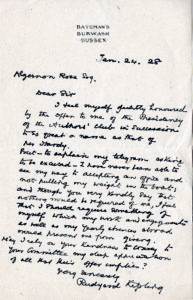 BATEMAN'S
BURWASH
SUSSEX
Jan. 24. 28
Algernon Rose Esq.
Dear Sir
I feel myself greatly honoured
by the offer to me of the Presidency
of the Authors' Club in succession
to so great a name as that of
Mr Hardy.
But to explain my telegram asking
to be excused: I have never been able to
see my way to accepting an office and
not pulling my weight in the boat;
and though you very kindly say that
nothing would be required of me, I feel
that I should require something of
myself which my
as well as my yearly absences abroad,
would prevent me from giving.
May I rely on your kindness to convey to
the Committee my deep appreciation
of all that their offer implies?
Very sincerely
Rudyard Kipling